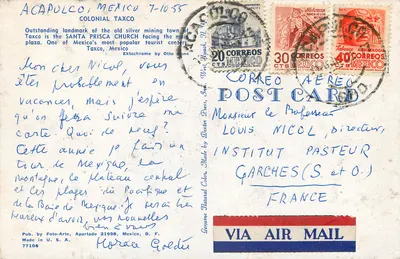 ACAPULCO, MEXICO 7-10-55
COLONIAL TAXCO
Outstanding landmark of the old silver mining town
Taxco is the SANTA PRISCA CHURCH facing the main
plaza. One of Mexico's most popular tourist
Taxco, Mexico
Ektachrome by
Mon cher Nicol, vous
êtes probablement en
vacances mais j'espère
qu'on fera suivre ma
carte. Quoi de neuf?
Cette année je fais un
tour le Mexique. La
montagne, le plateau central
et les plages du Pacifique et
de la Baie de Mexique. Je serais très
heureux d'avoir vos nouvelles
bien à vous
Pub. by Foto-Arte, Apartado 21008, Mexico, D. F.
Made in U. S. A.
77166
Genuine Natural Color. Made by Dexter Press, Inc. West Nyack, N.
ACAPULCO
20 CORREOS
30 CORREOS
CTS
40 CORREOS
CORREO AEREO
POST CARD
Monsieur le Professeur
LOUIS NICOL, DIRECTEUR
INSTITUT PASTEUR
GARCHES (S. et O.)
FRANCE
VIA AIR MAIL